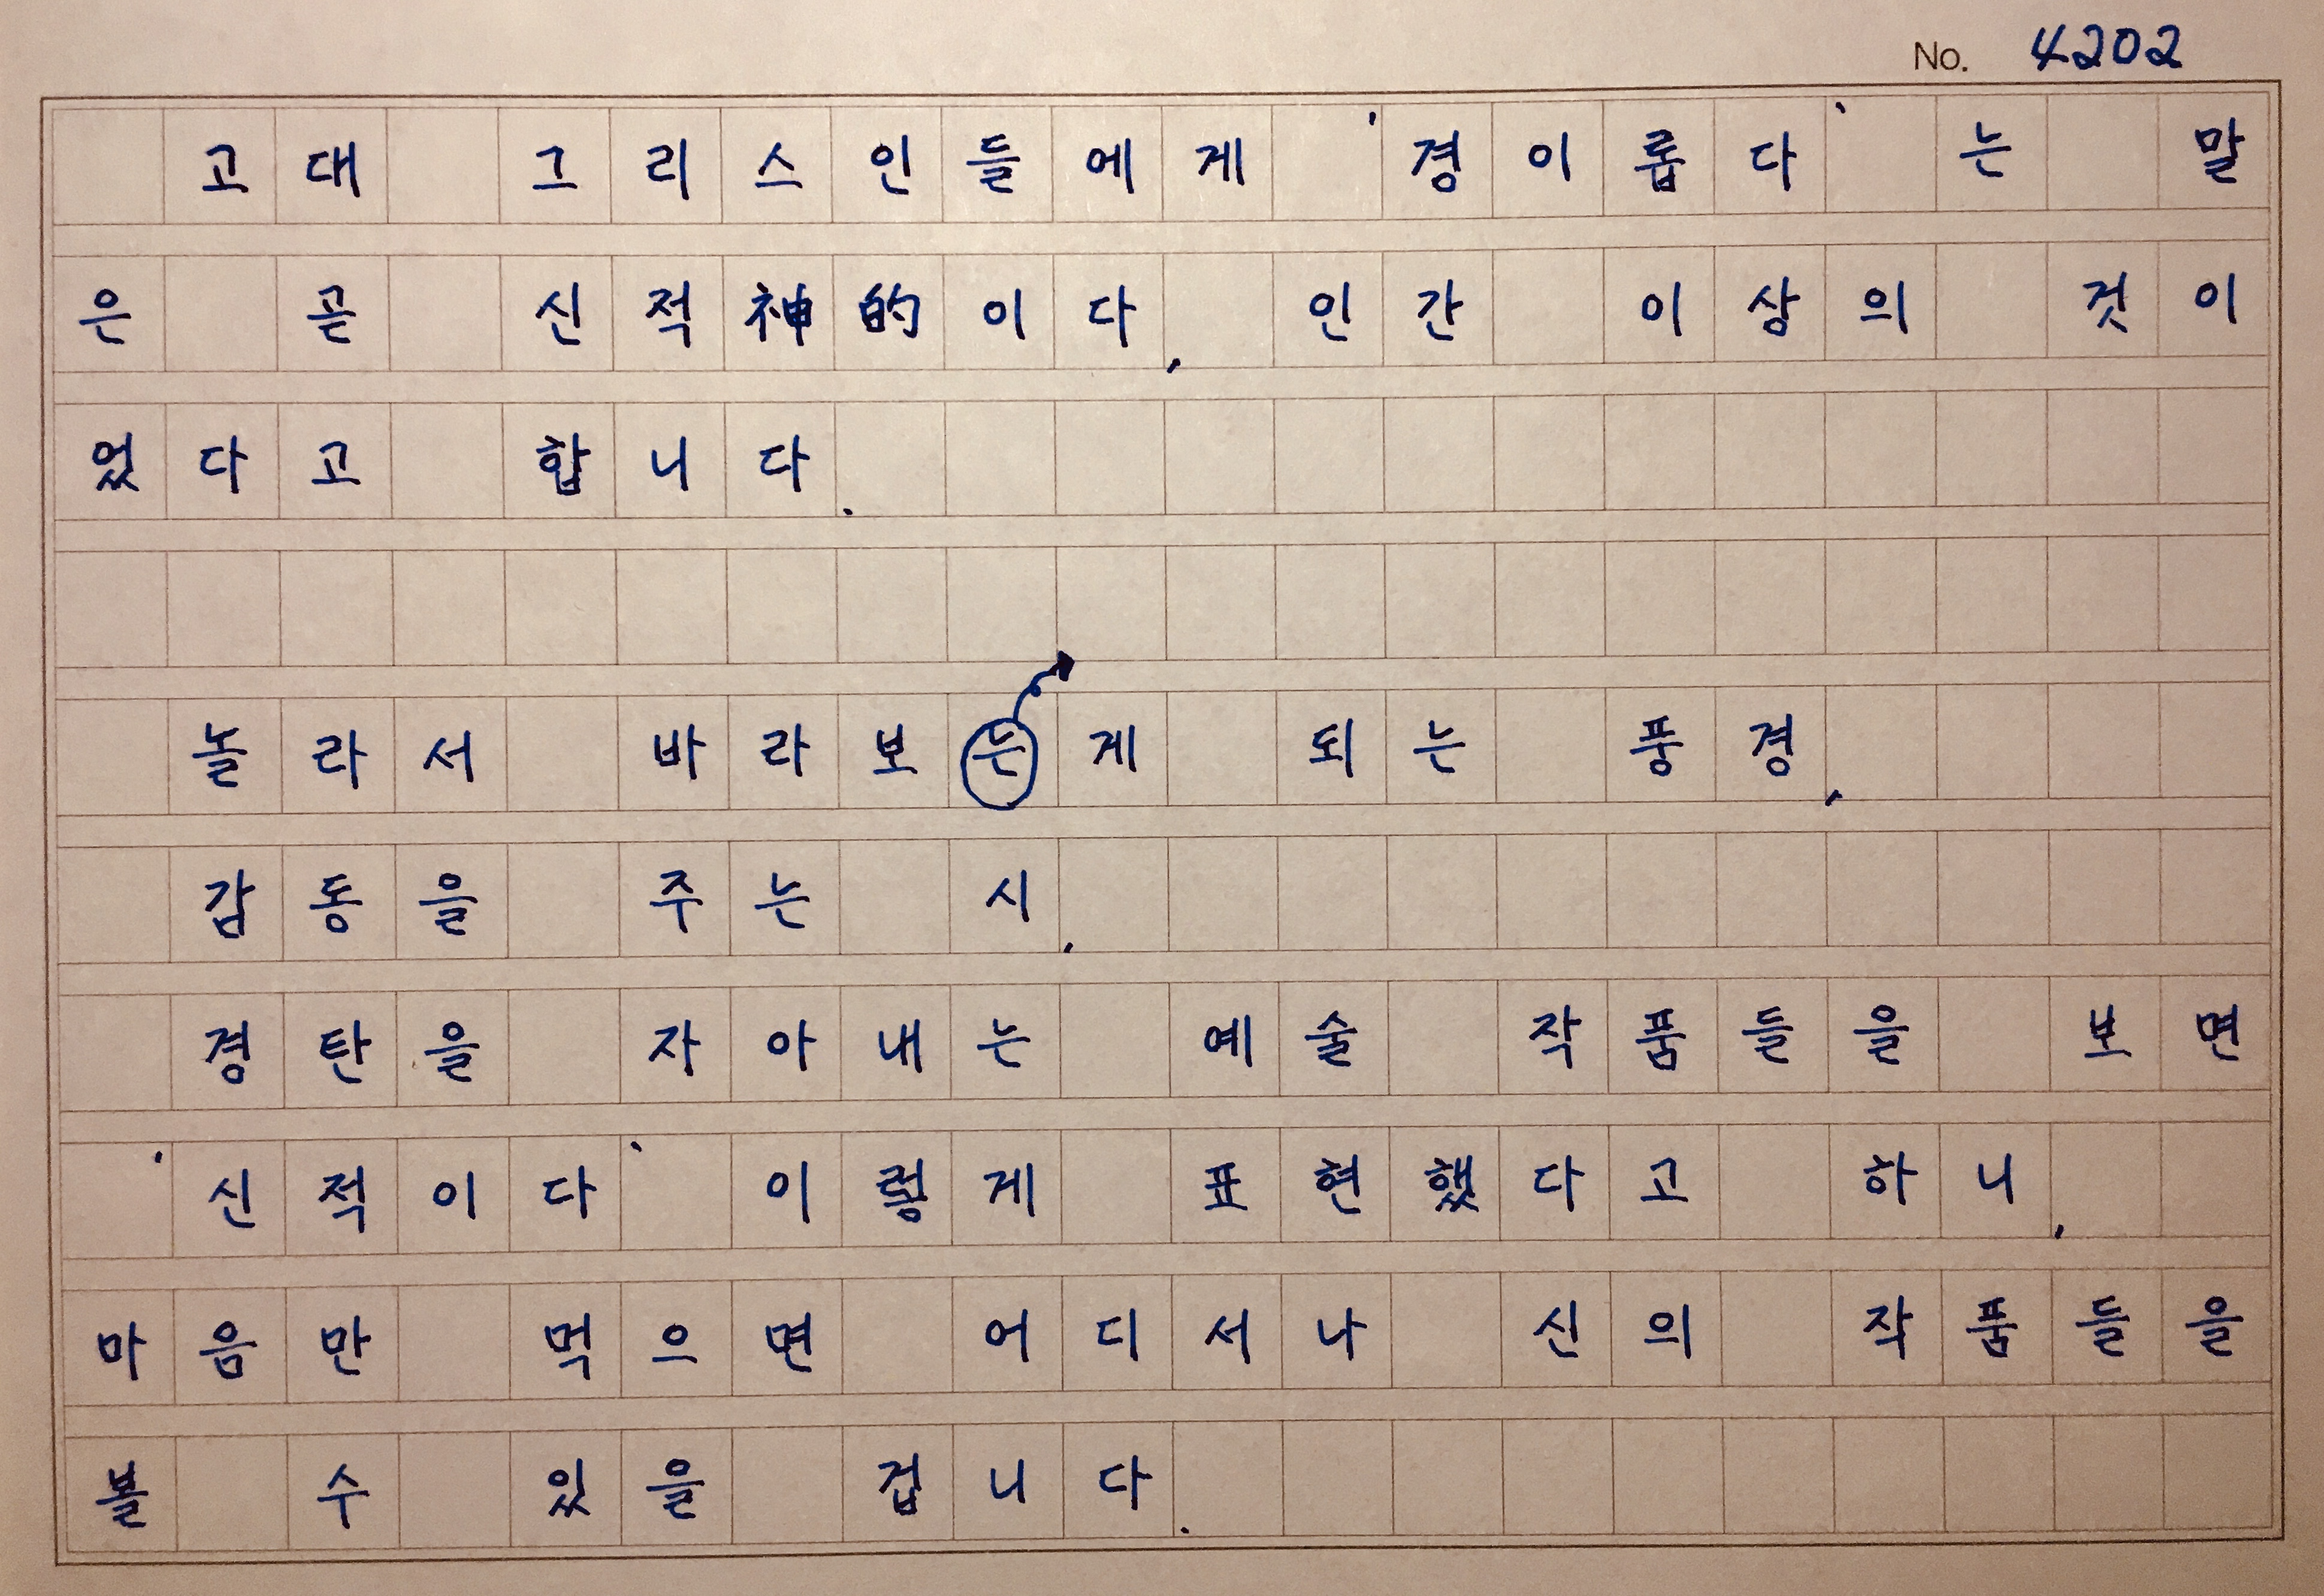 No. 4202
고대 그리스인들에게 '경이롭다'는 말
은 곧 신적神的이다, 인간 이상의 것이
었다고 합니다.
놀라서 바라보는게 되는 풍경,
감동을 주는 시,
경탄을 자아내는 예술 작품들을 보면
'신적이다' 이렇게 표현했다고 하니,
마음만 먹으면 어디서나 신의 작품들을
볼 수 있을 겁니다.